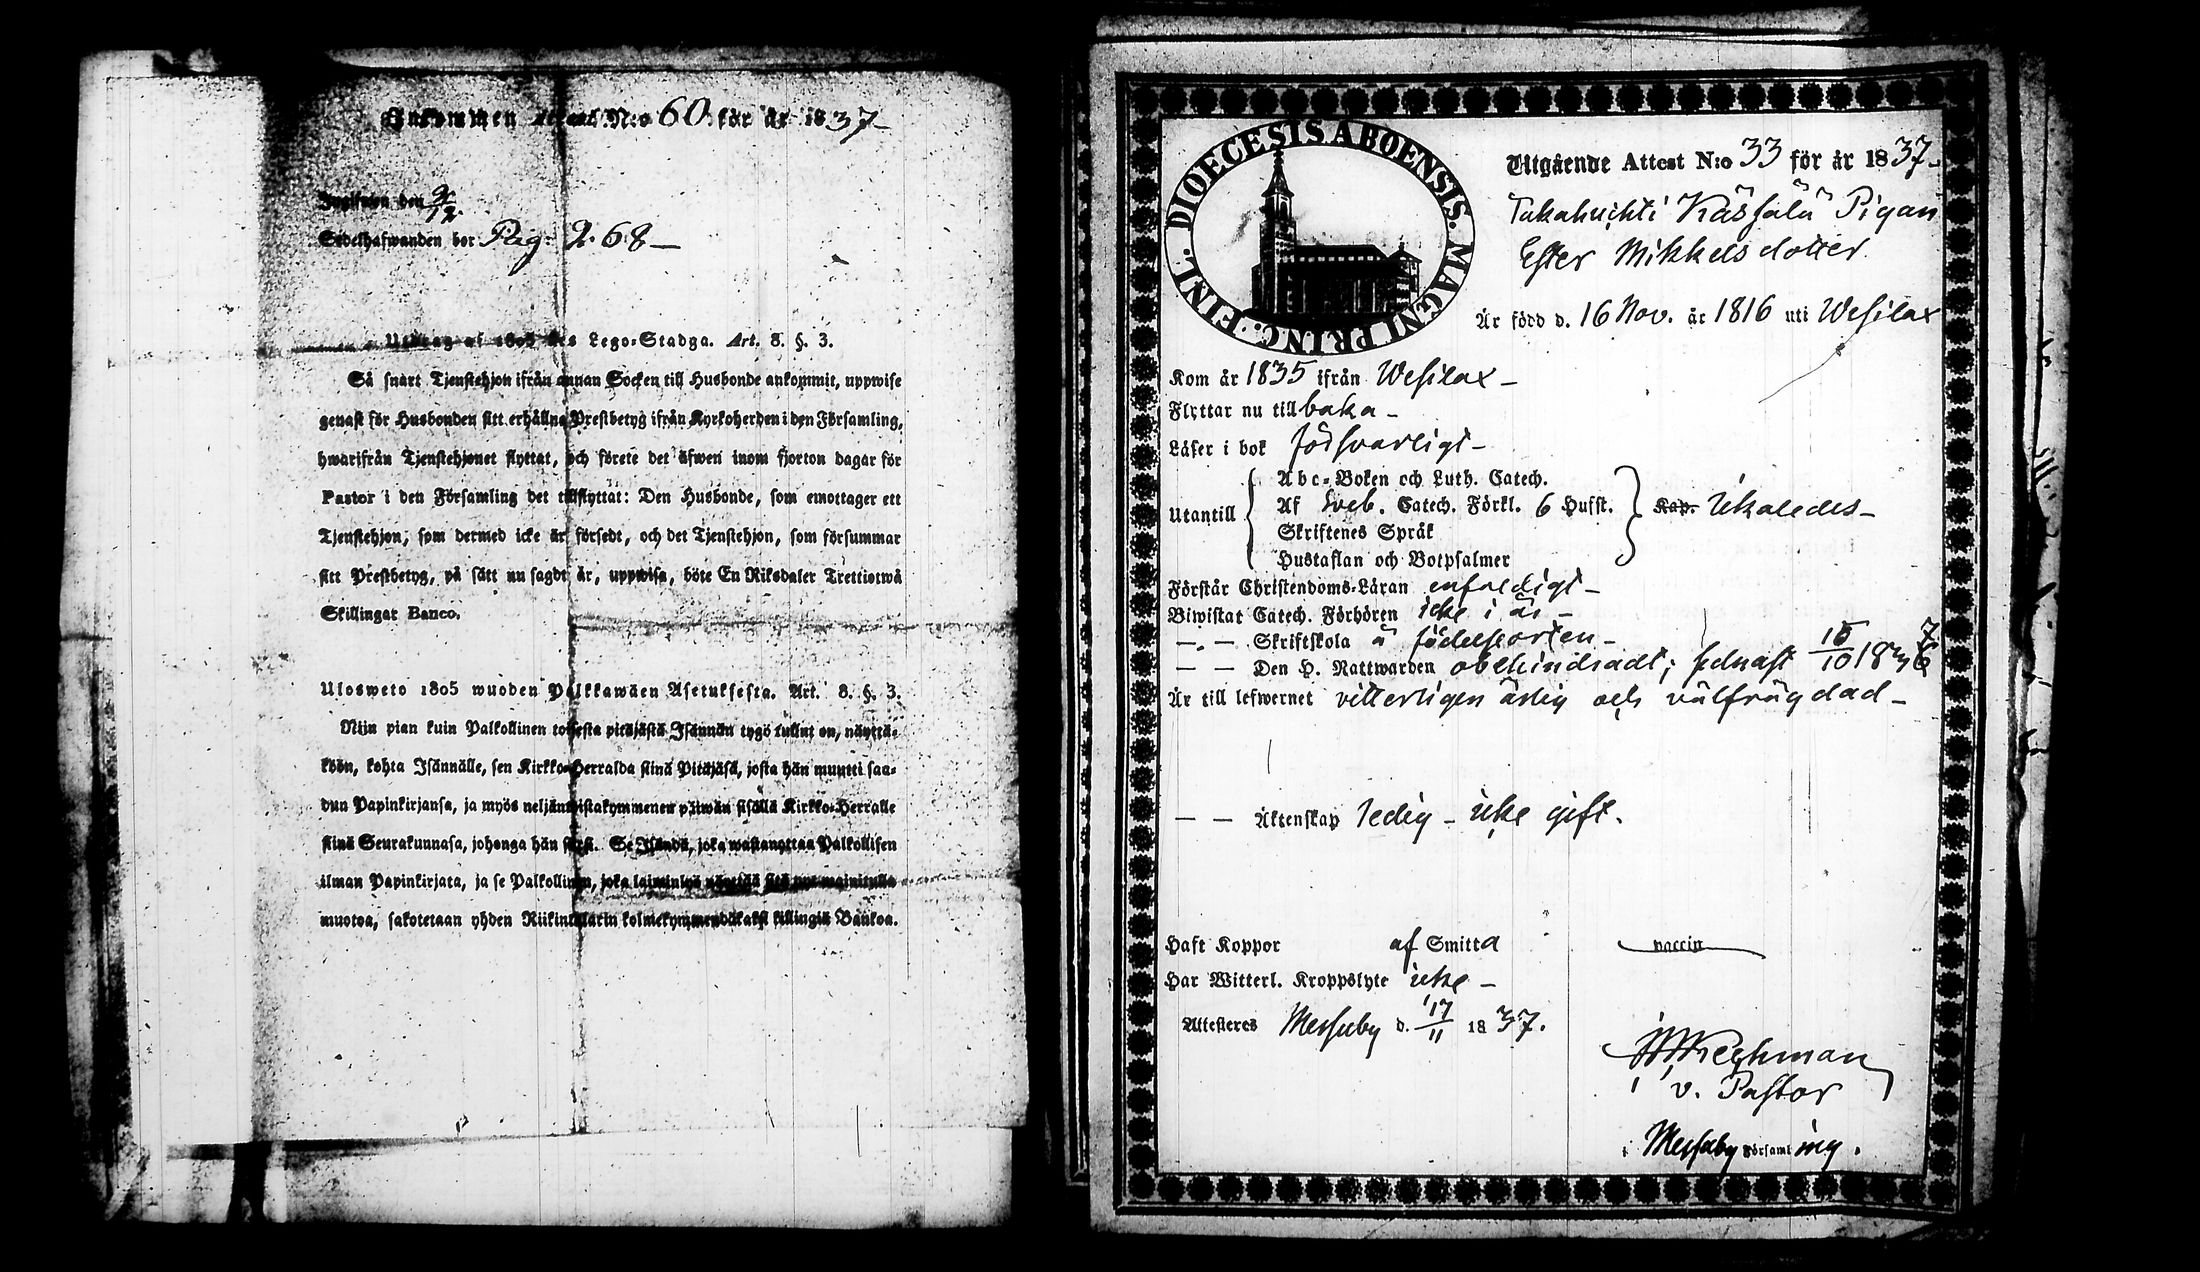 Inkommen Attest N:o 60 för år 1837
Inskrifven den 9/12
Sedelhafwanden bor Pag: 268
Utdrag af 1805 års Lego-Stadga. Art. 8. §. 3.
Så snart Tjenstehjon ifrån annan Socken till Husbonde ankommit, uppwise
genast för Husbonden sitt erhållna Prestbetyg ifrån Kyrkoherden i den Församling,
hwarifrån Tjenstehjonet flyttat, och förete det äfwen inom fjorton dagar för
Pastor i den Församling det tillflyttat: Den Husbonde, som emottager ett
Tjenstehjon, som dermed icke är försedt, och det Tjenstehjon, som försummar
sitt Prestbetyg, på sätt nu sagdt är, uppwisa, böte En Riksdaler Trettiotwå
Skillingar Banco.
Ulosweto 1805 wuoden Palkkawäen Asetuksesta. Art. 8. §. 3.
Niin pian kuin Palkollinen toisesta pitäjästä Isännän tygö tullut on, näyttä-
köön, kohta Isännälle, sen Kirkko-Herralda siinä Pitäjäsä, josta hän muutti saa-
dun Papinkirjansa, ja myös neljäntoistakymmenen päiwän sisällä Kirkko-Herralle
siinä Seurakunnasa, johonga hän siirsi. Se Isändä, joka wastanottaa Palkollisen
ilman Papinkirjata, ja se Palkollinen, joka laiminlyö näyttää sitä nyt mainitulla
muotoa, sakotetaan yhden Riikintalarin kolmekymmendäkaksi killingiä Bankoa.
DIOECESIS ABOENSIS. MAGNI PRINC. FINL.
Utgående Attest N:o 33 för år 1837
Takahuhti Pigan
Ester Mikkelsdotter
Är född d. 16 Nov. år 1816 uti Wesilax
Kom år 1835 ifrån Wesilax
Flyttar nu tillbaka
Läser i bok försvarligt
Utantill
Abc-Boken och Luth. Catech.
Af Sveb. Catech. Förkl. 6 Hufst. Kap. likaledes
Skriftenes Språk
Hustaflan och Botpsalmer
Förstår Christendoms-Läran enfaldigt
Biwistat Catech. Förhören icke i år
— . — Skriftskola å födelseorten
— — Den H. Nattwarden obehindradt; sednast 15/10 1837
Är till lefwernet vitterligen ärlig och välfrägdad
— — Äktenskap ledig – icke gift.
Haft Koppor af Smitta vaccin
Har Witterl. Kroppslyte icke
Attesteres Messuby d. 17/11 1837.
v. Pastor
i Messuby Församling.